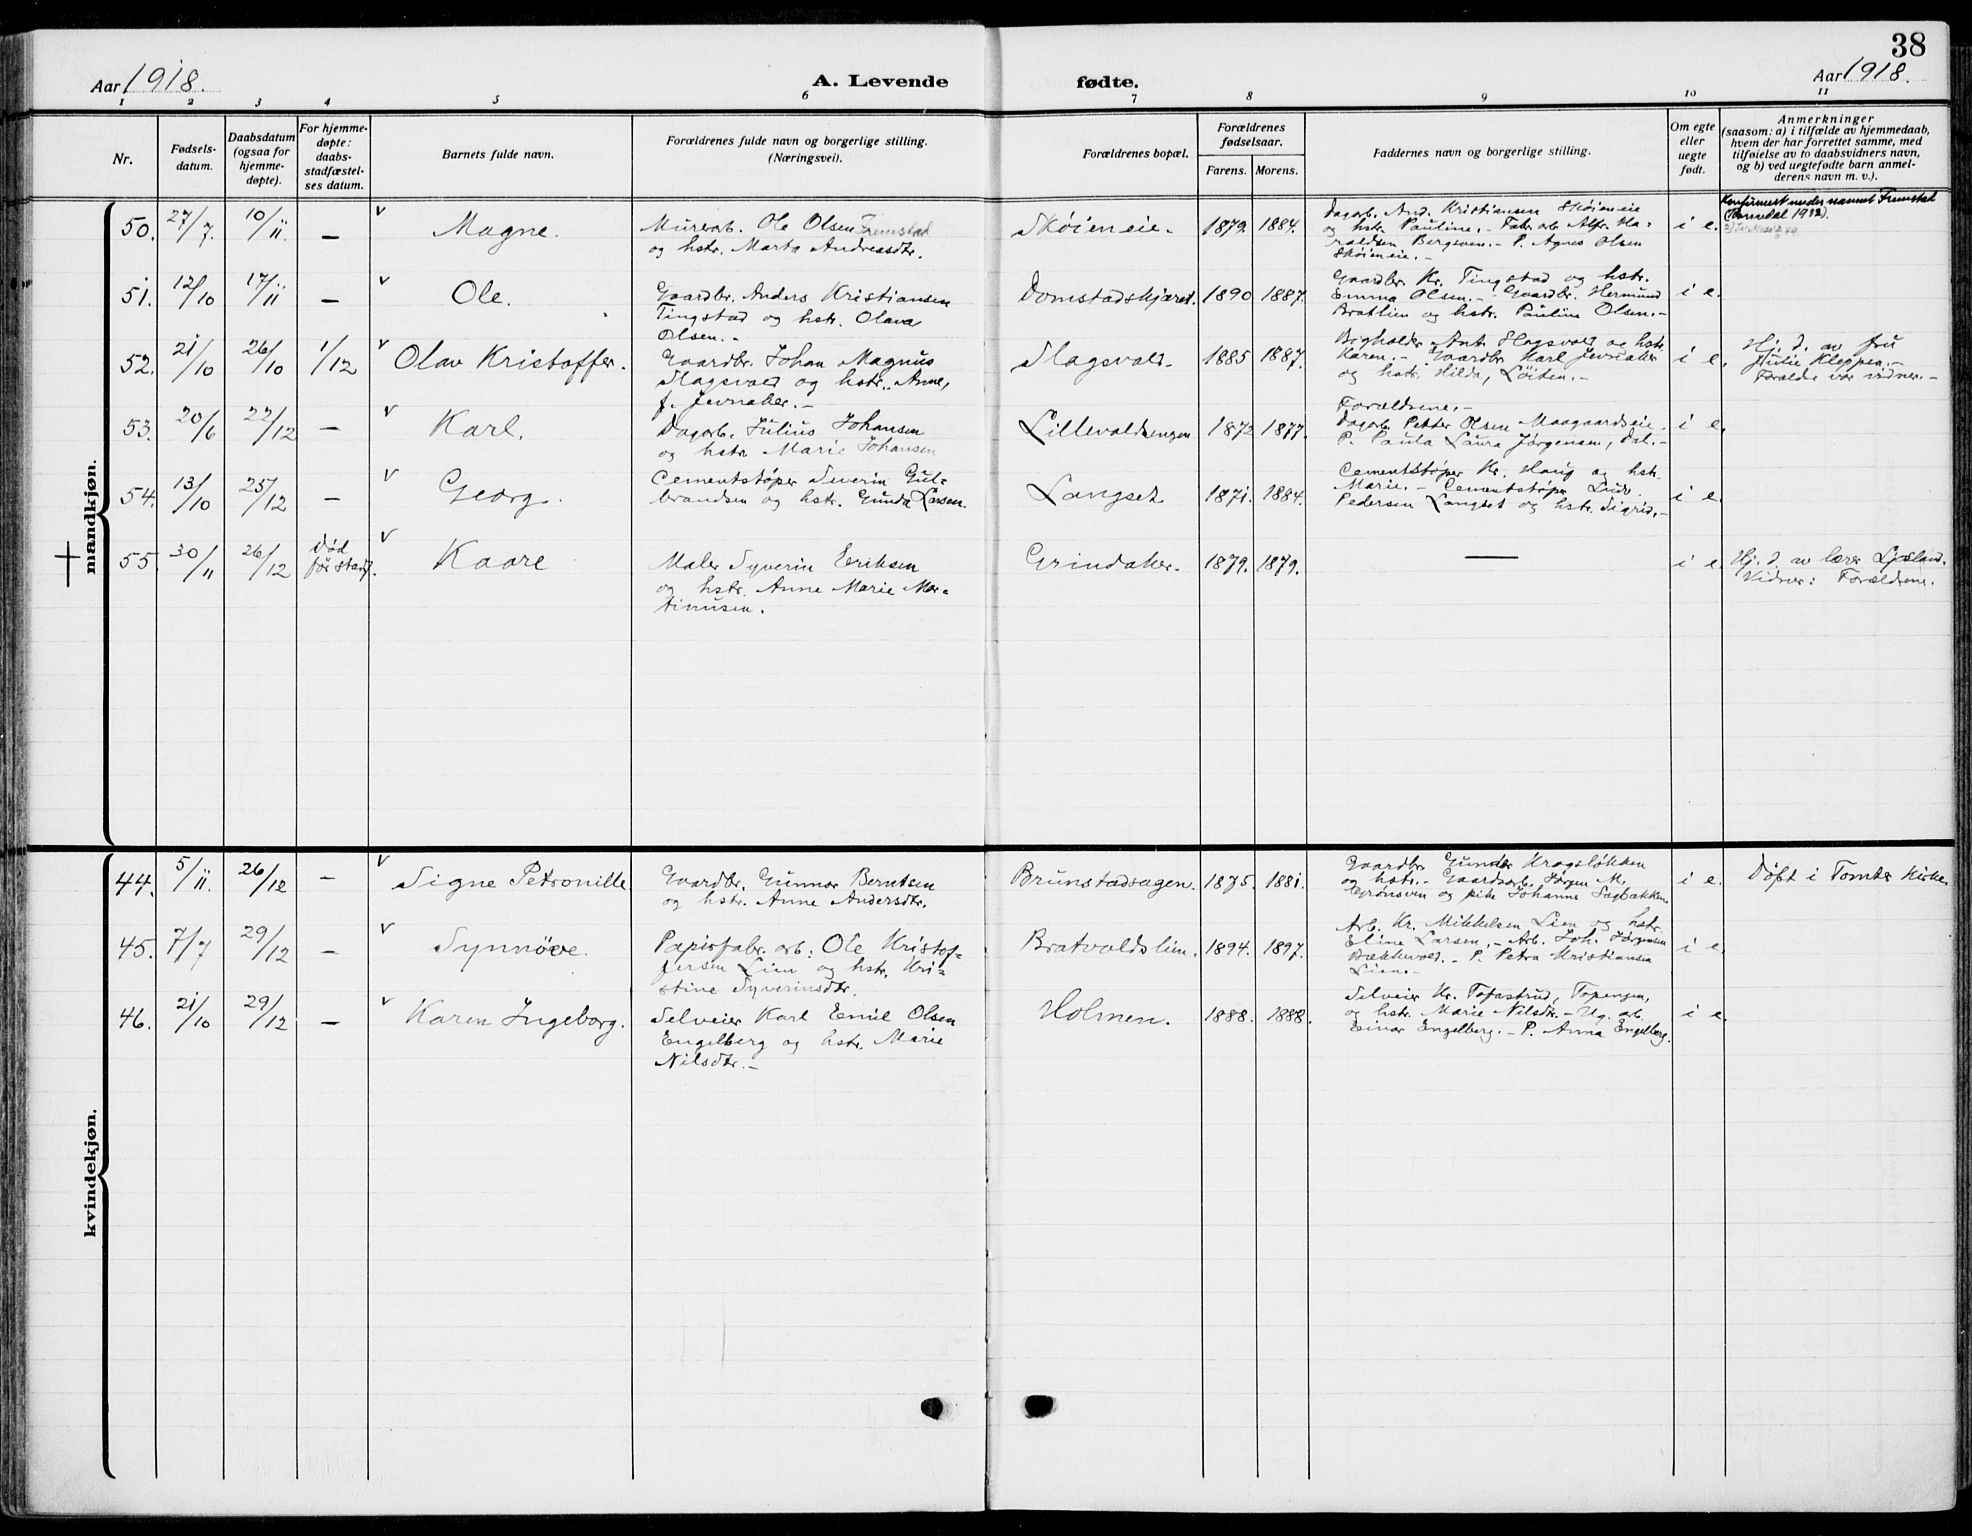 38
Aar 1918.
A. Levende
fødte.
Aar 1918.
1 2 3 4 5 6 7 8 9 10 11
Nr.
Fødsels-
datum.
Daabsdatum
(ogsaa for
hjemme-
døpte).
For hjemme-
døpte:
daabs-
stadfæstel-
ses datum.
Barnets fulde navn.
Forældrenes fulde navn og borgerlige stilling.
(Næringsvei).
Forældrenes bopæl.
Forældrenes
fødselsaar.
Farens. Morens.
Faddernes navn og borgerlige stilling.
Om egte
eller
uegte
født.
Anmerkninger
(saasom: a) i tilfælde av hjemmedaab,
hvem der har forrettet samme, med
tilføielse av to daabsvidners navn,
og b) ved uegtefødte barn anmel-
derens navn m. v.).
mandkjøn.
50. 27/7. 10/11. — v Magne.
Murerarb. Ole Olsen Fremstad
og hstr. Marta Andreasdtr.
Skøieneie. 1879. 1884.
Dagarb. And. Kristiansen Skøieneie
og hstr. Pauline. - Fabr. arb. Alfr. Ha-
raldsen Bergsven. - P. Agnes Olsen
Skøieneie. -
i e.
Konfirmert under navnet Fremstad
51. 12/10 17/11 — v Ole.
Gaardbr. Anders Kristiansen
Tingstad og hstr. Olava
Olsen. -
Domstadskjæret. 1890. 1887.
Gaardbr. Kr. Tingstad og hstr.
Emma Olsen. - Gaardbr. Hermund
Bratlien og hstr. Pauline Olsen. -
i e.
52. 21/10 26/10 1/12 v Olav Kristoffer.
Gaardbr. Johan Magnus
Slagsvold og hstr. Anne,
f. Jevnaker. -
Slagsvold. 1885 1887.
Bygholder Ant. Slagsvold og hstr.
Karen. - Gaardbr. Karl Jevnaker
og hstr. Hilda, Løiten. -
i e.
Hj. d. av fru
Julie Kleppen. -
Forældr. var vidner. -
53. 20/6 22/12 — v Karl.
Dagarb. Julius Johansen
og hstr. Marie Johansen
Lillevoldsengen 1872 1877.
Forældrene. -
Dagarb. Petter Olsen Maagaardseie.
P. Paula Laura Jørgensen, Dal. -
i e.
54. 13/10 25/12 — v Georg.
Cementstøper Severin Gul-
brandsen og hstr. Gunda Larsen.
Langset 1871. 1884.
Cementstøper Kr. Haug og hstr.
Marie. - Cementstøper Ludv.
Pedersen Langset og hstr. Sigrid. -
i e.
55. 30/11 26/12 Død
før stadf. v Kaare
Maler Syverin Eriksen
og hstr. Anne Marie Mar-
tinusen.
Grindaker. 1879. 1879. — i e.
Hj. d. av lærer Lysland.
Vidner: Forældrene.
kvindekjøn.
44. 5/11. 26/12 — v Signe Petronille
Gaardbr. Gunnar Berntsen
og hstr. Anne Andersdtr.
Brunstadsagen. 1875. 1881.
Gaardbr. Gunder Kragsløkken
og hstr. - Gaardsarb. Jørgen M.
Grønsven og pike Johanne Sagbakken.
i e.
Døpt i Tomter Kirke.
45. 7/7 29/12 — v Synnöve.
Papirfabr. arb. Ole Kristof-
fersen Lien og hstr. Kri-
stine Syverinsdtr.
Bratvoldslien. 1894. 1897.
Arb. Kr. Mikkelsen Lien og hstr.
Eline Larsen. - Arb. Joh. Jørgensen
Bækkevold. - P. Petra Kristiansen
Lien. -
i e.
46. 21/10 29/12 — v Karen Ingeborg.
Selveier Karl Emil Olsen
Engelberg og hstr. Marie
Nilsdtr. -
Holmen. 1888. 1888.
Selveier Kr. Tofastrud, Topengen,
og hstr. Marie Nilsdtr. - Ug. arb.
Einar Engelberg. - P. Anna Engelberg.
i e.